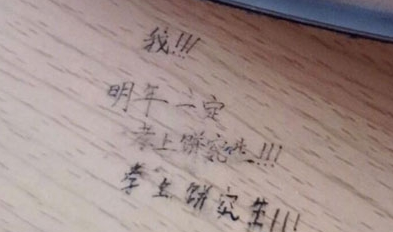 我!!!
明年一定
考上饼究生!!!
考上饼究生!!!